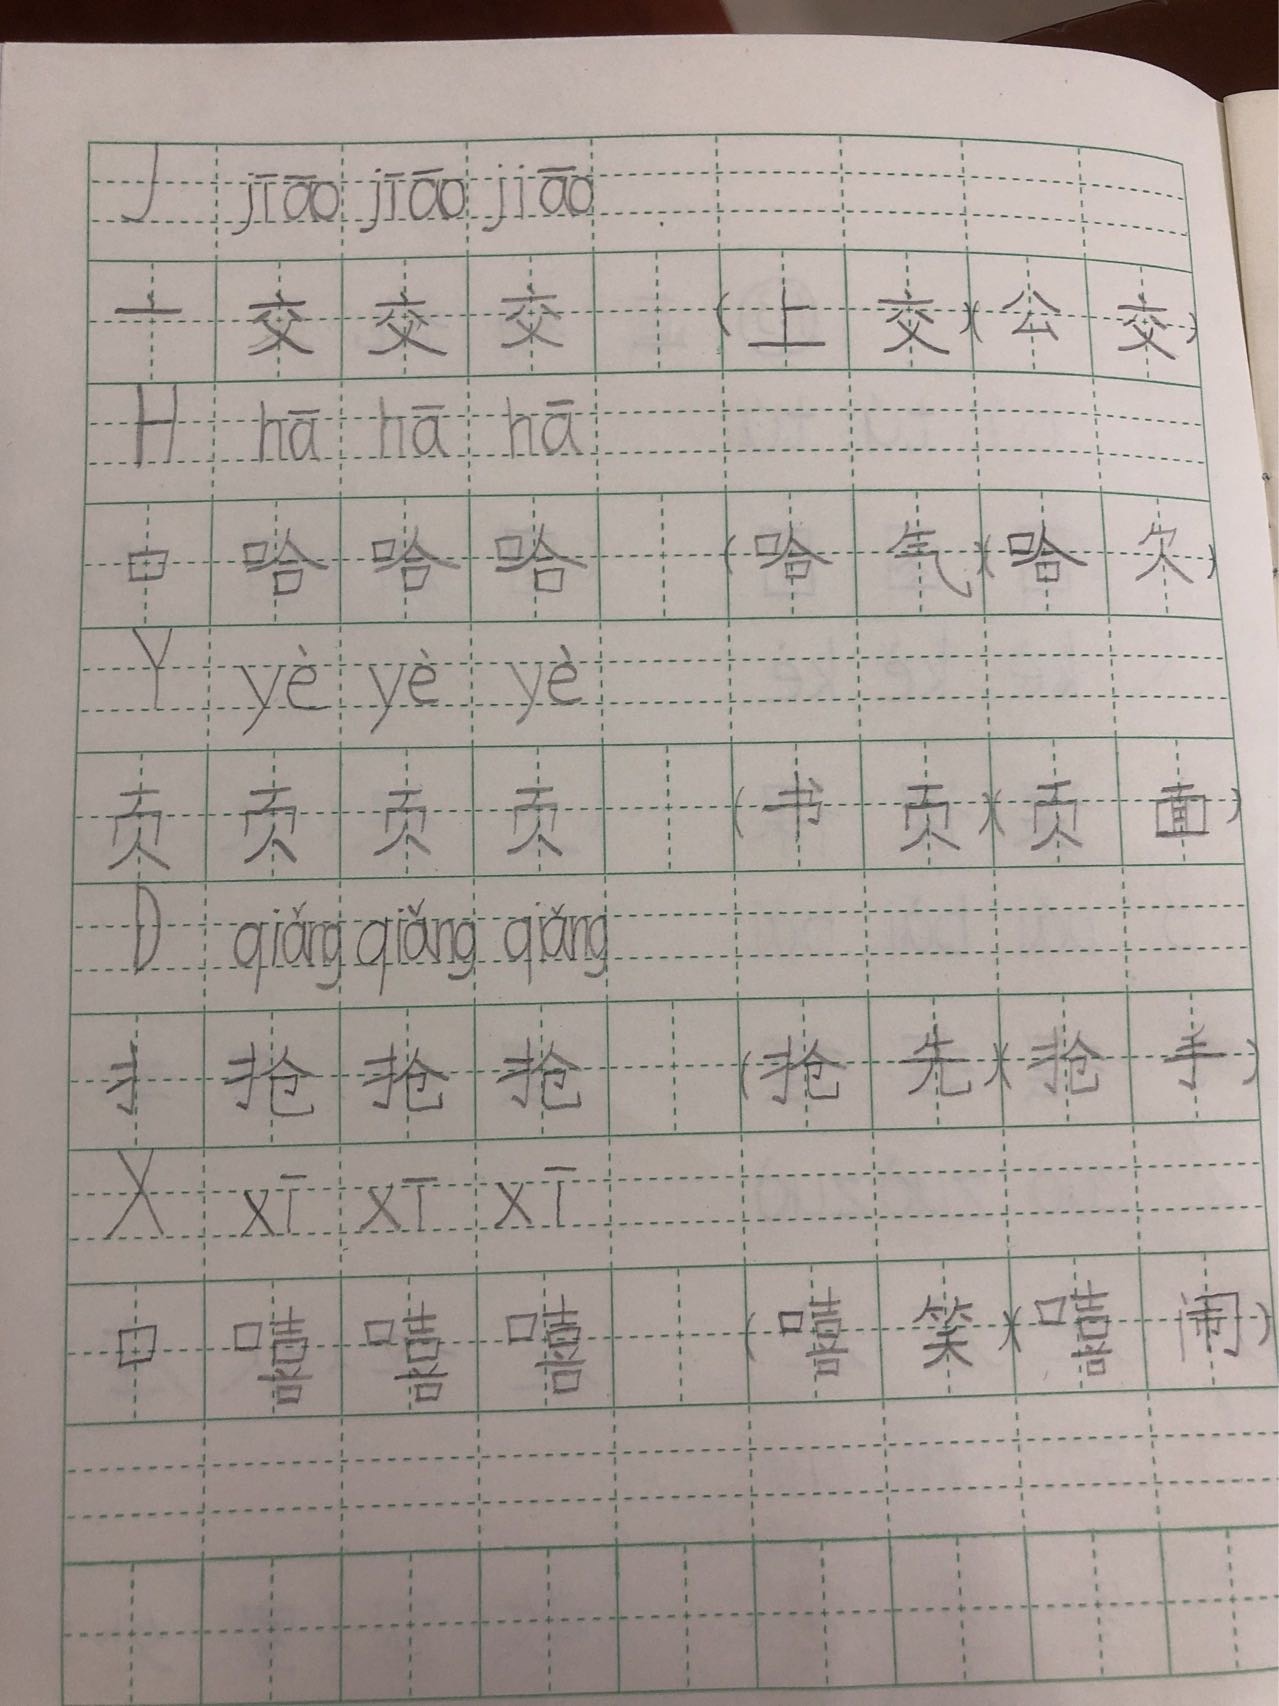 J jiāo jiāo jiāo
亠 交 交 交 (上交)(公交)
H hā hā hā
口 哈 哈 哈 (哈气)(哈欠)
Y yè yè yè
页 页 页 页 (书页)(页面)
D qiǎng qiǎng qiǎng
扌 抢 抢 抢 (抢先)(抢手)
X xī xī xī
口 嘻 嘻 嘻 (嘻笑)(嘻闹)